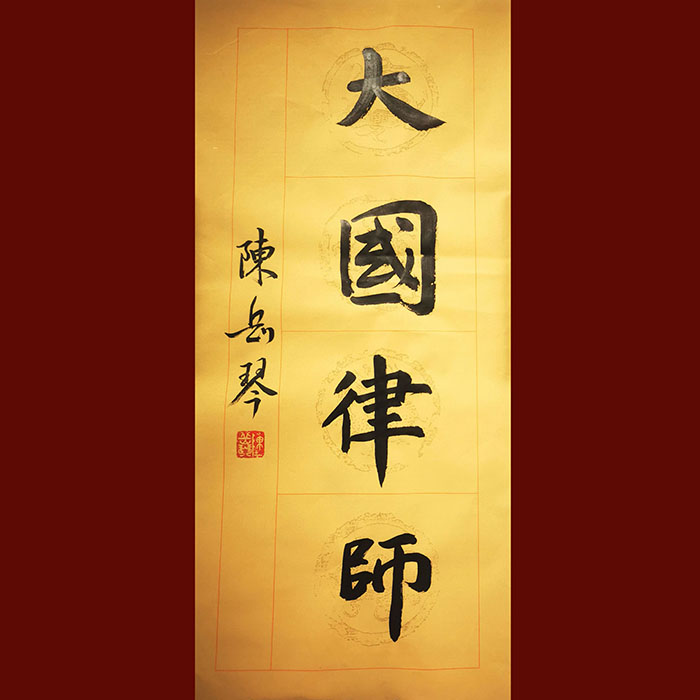 大國律師
陳岳琴